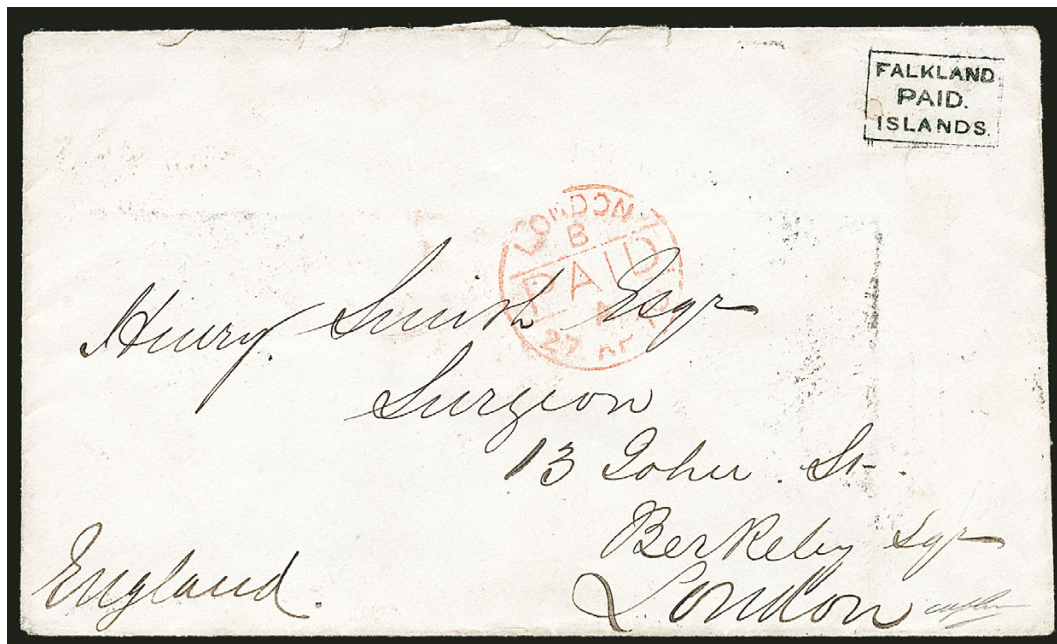 FALKLAND
PAID.
ISLANDS.
LONDON
B
PAID
27 AP
Henry Smith Esqr
Surgeon
13 John St
Berkeley Sqr
London
England.